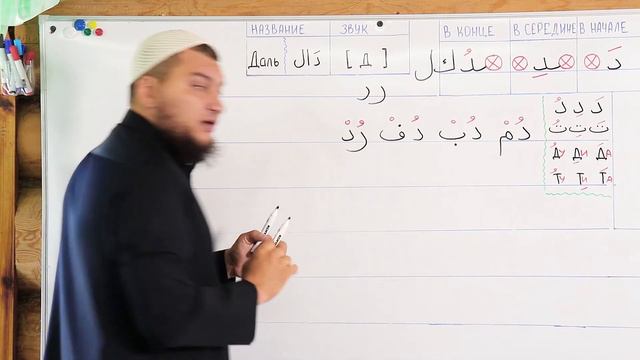 НАЗВАНИЕ ЗВУК В КОНЦЕ В СЕРЕДИНЕ В НАЧАЛЕ
Даль دَال [ Д ]
رر
دَ دِ دُ
تَ تِ تُ
ДУ ДИ ДА
ТУ ТИ ТА
دُمْ دُبْ دُفْ رُدْ